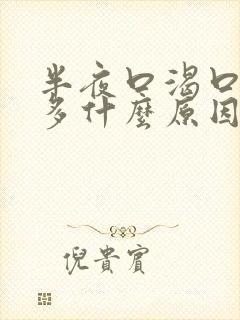 半夜口渴口
多什麼原因
倪貴賓